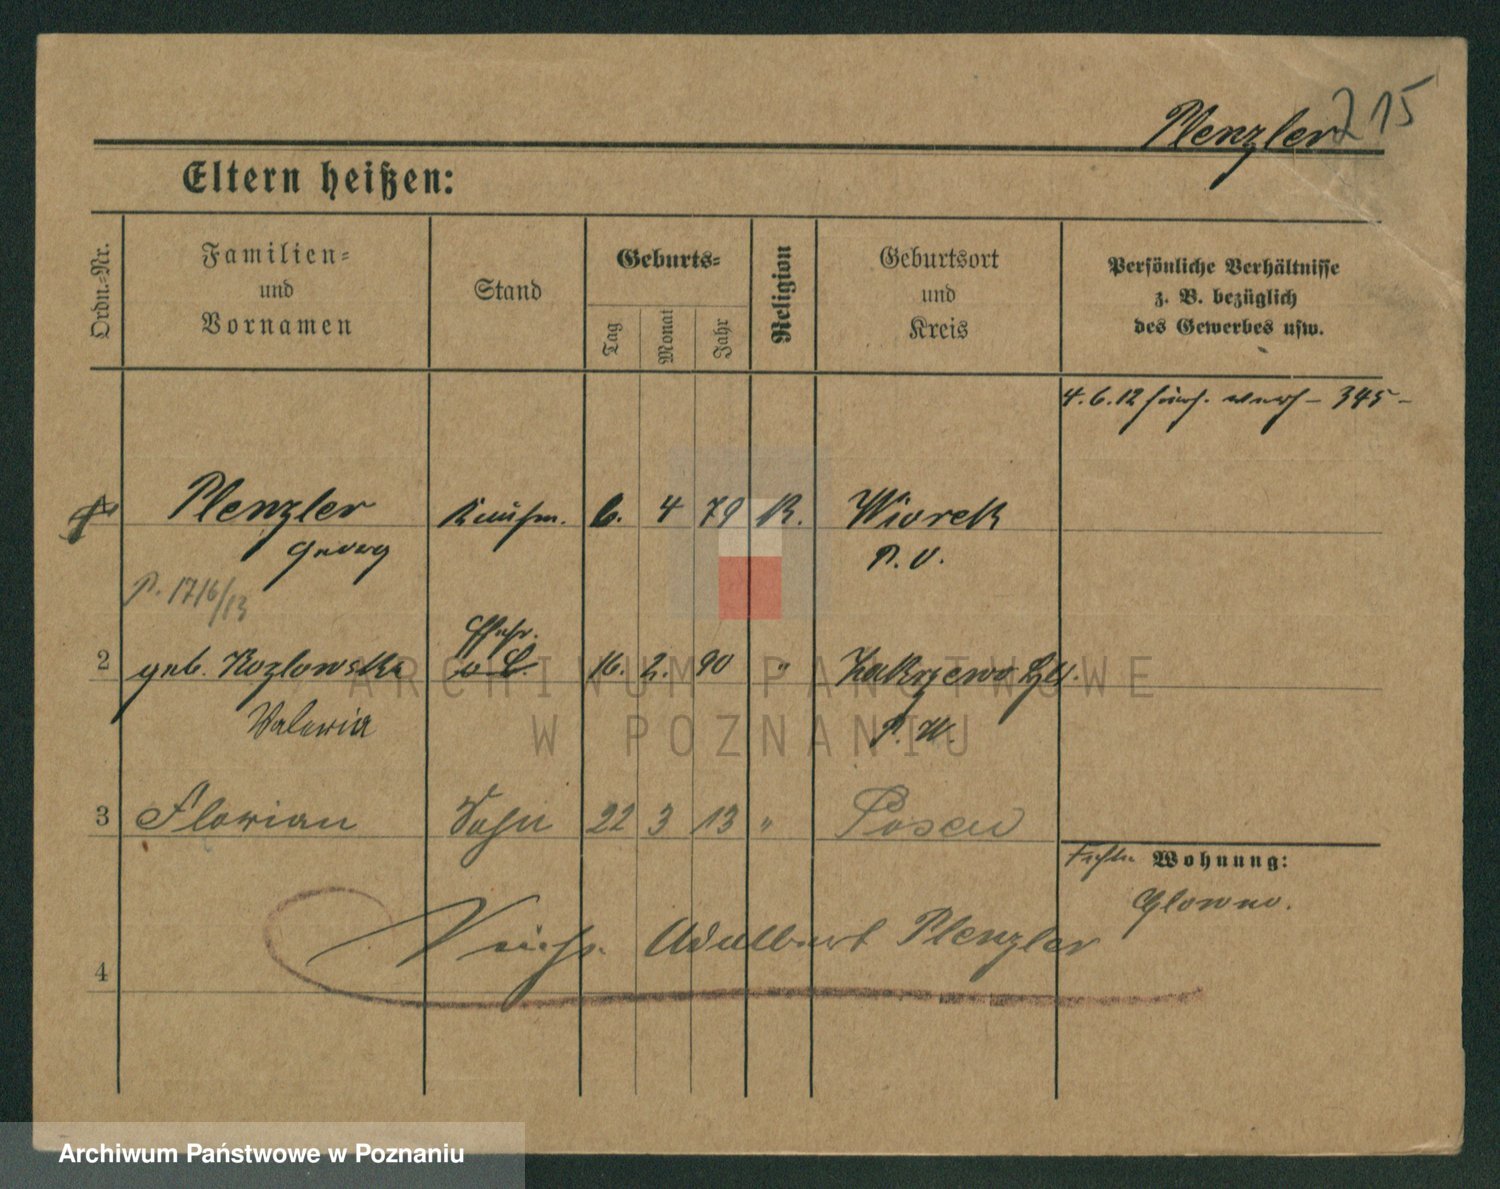 Plenzler 215
Eltern heißen:
Ordn.-Nr.
Familien-
und
Vornamen
Stand
Geburts-
Tag
Monat
Jahr
Religion
Geburtsort
und
Kreis
Persönliche Verhältnisse
z. B. bezüglich
des Gewerbes usw.
4.6.12 345
Plenzler Kaufm. 6. 4 79 K. Wiorek
Georg P. O.
P. 1716/13
Ehefr.
2 geb. Kozlowska 16. 2. 90 " Zakrzewo
Valeria P. W.
3 Florian Sohn 22 3 13 " Posen
Wohnung:
Glowno.
Adalbert Plenzler
4
ARCHIWUM PAŃSTWOWE
W POZNANIU
Archiwum Państwowe w Poznaniu